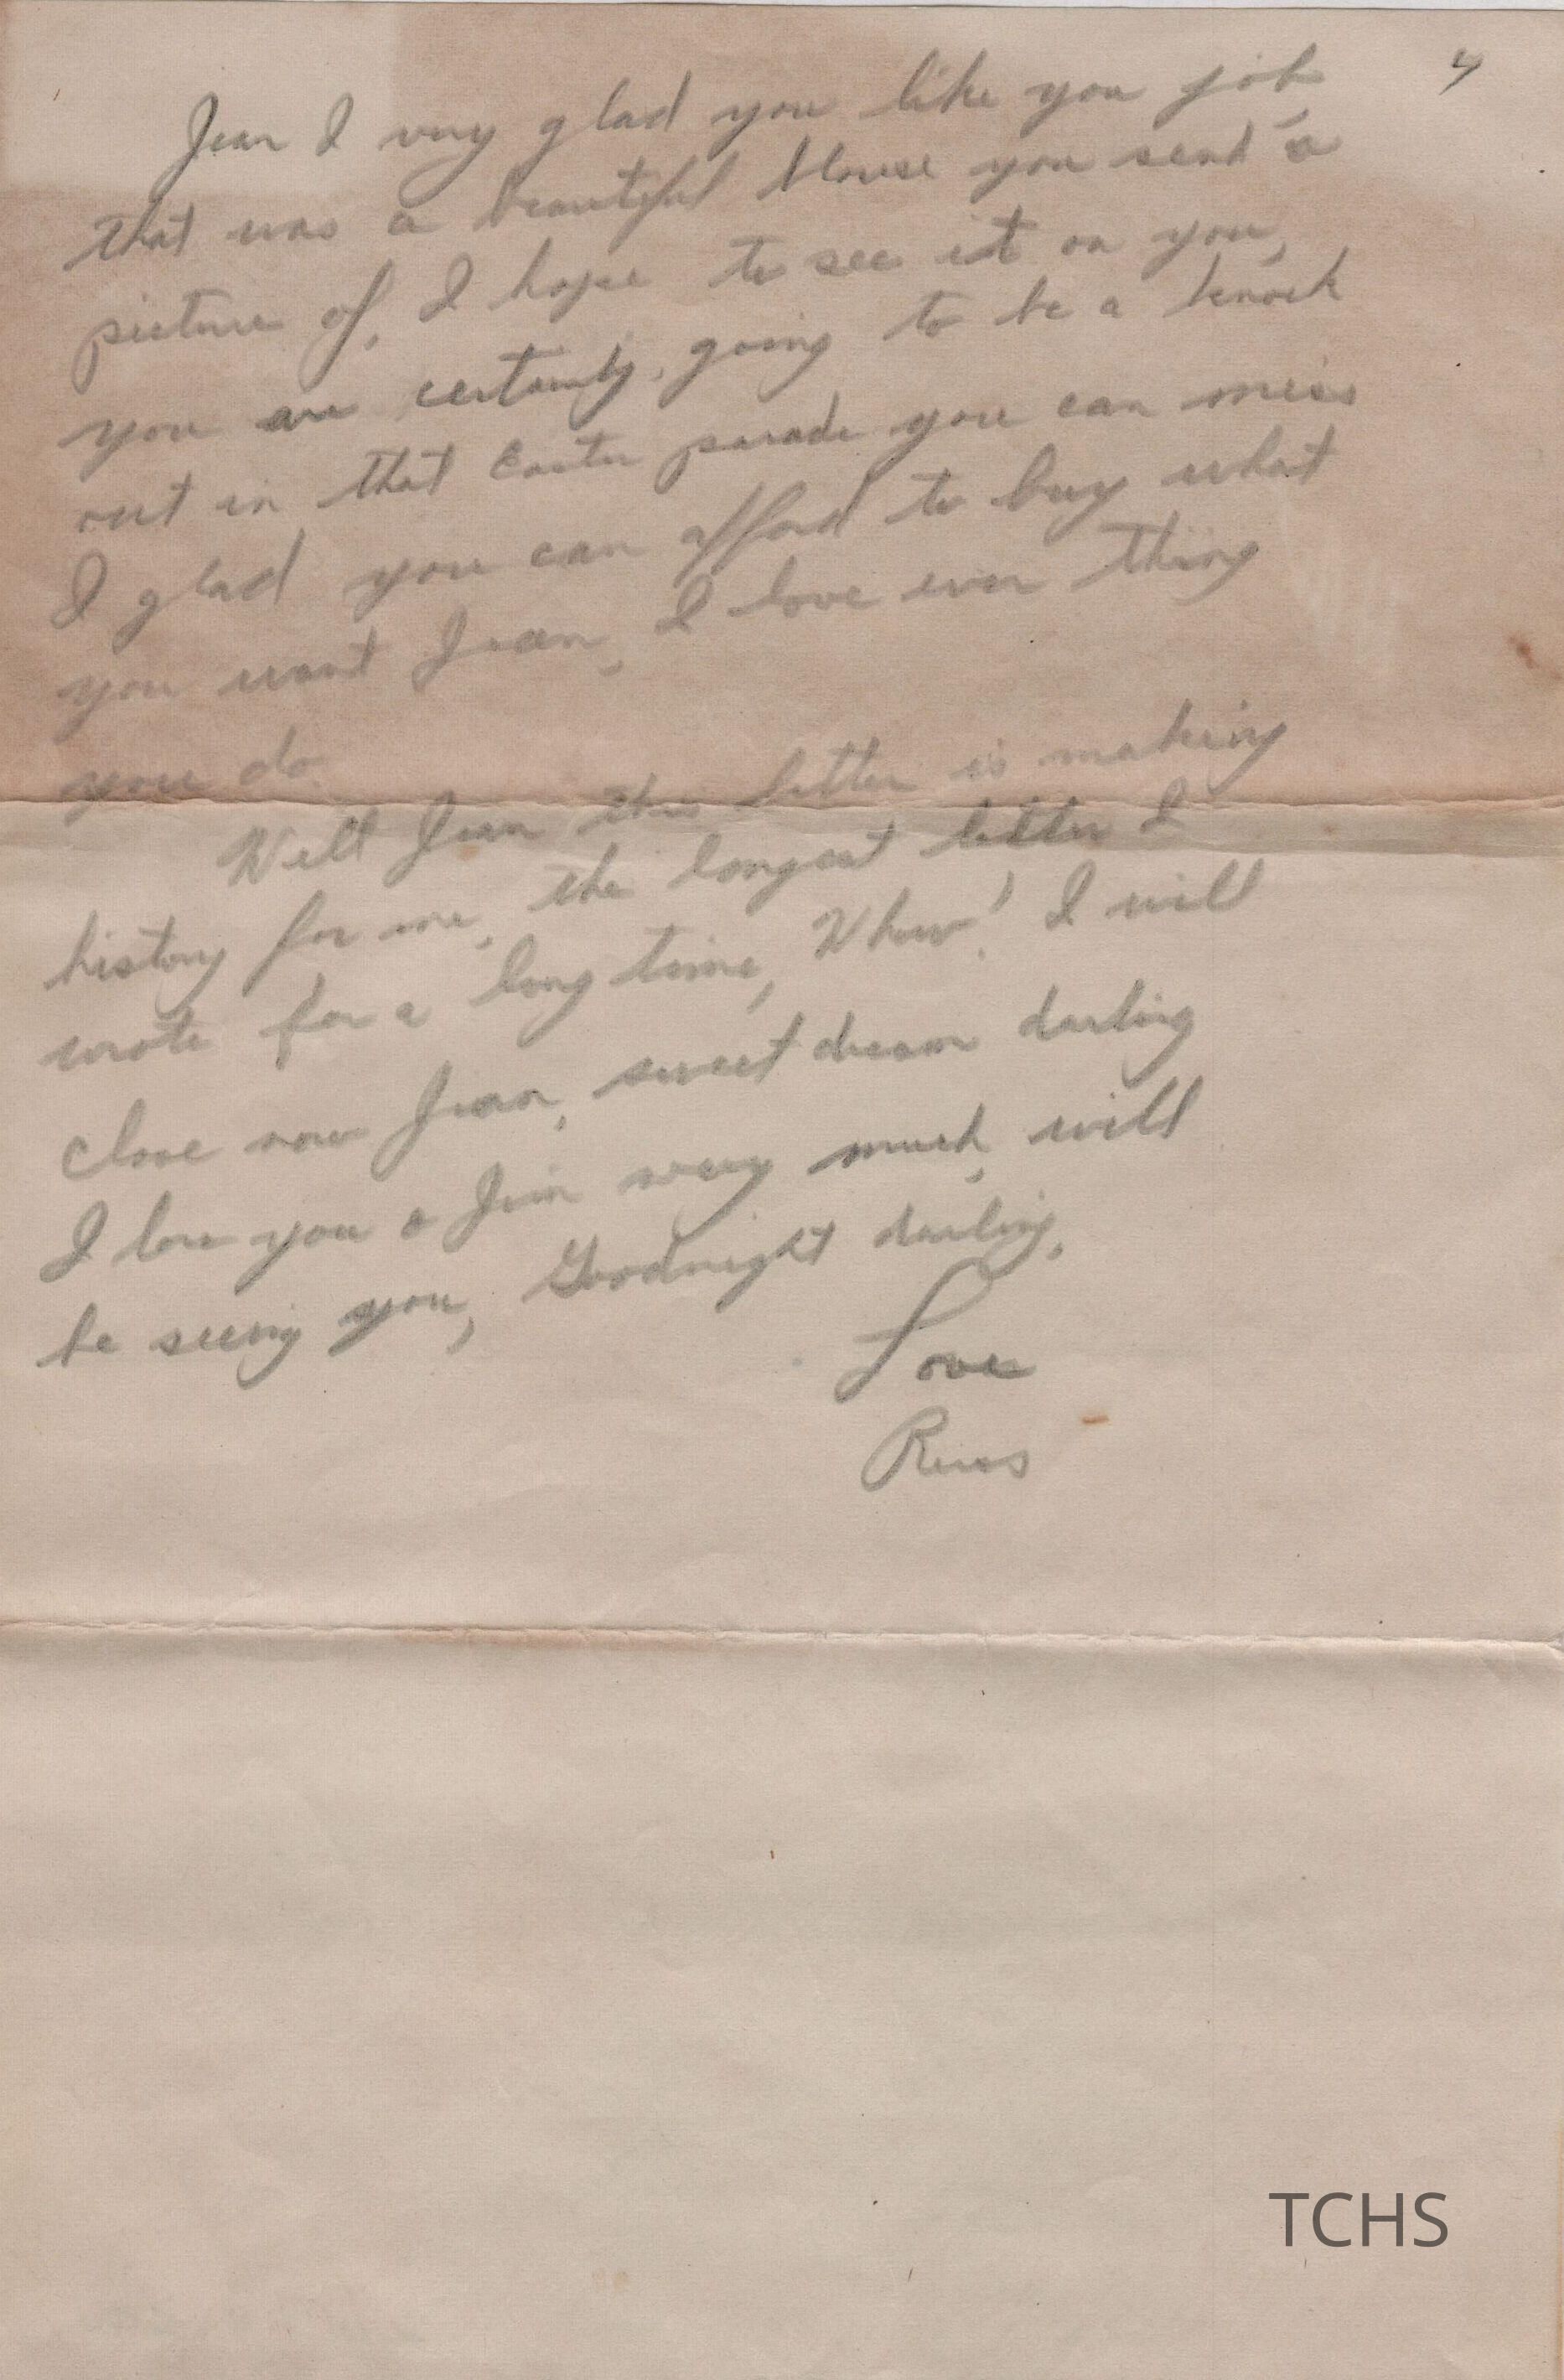 4
Jean I very glad you like you job,
that was a beautiful blouse you send a
picture of, I hope to see it on you,
you are certainly, going to be a knock
out in that Easter parade you can miss
I glad you can afford to buy what
you want Jean, I love ever thing
you do.
Well Jean this letter is making
history for me, the longest letter I
wrote for a long time, Whew! I will
close now Jean, sweet dream darling
I love you & Jim very much, will
be seeing you, Goodnight darling,
Love
Russ
TCHS